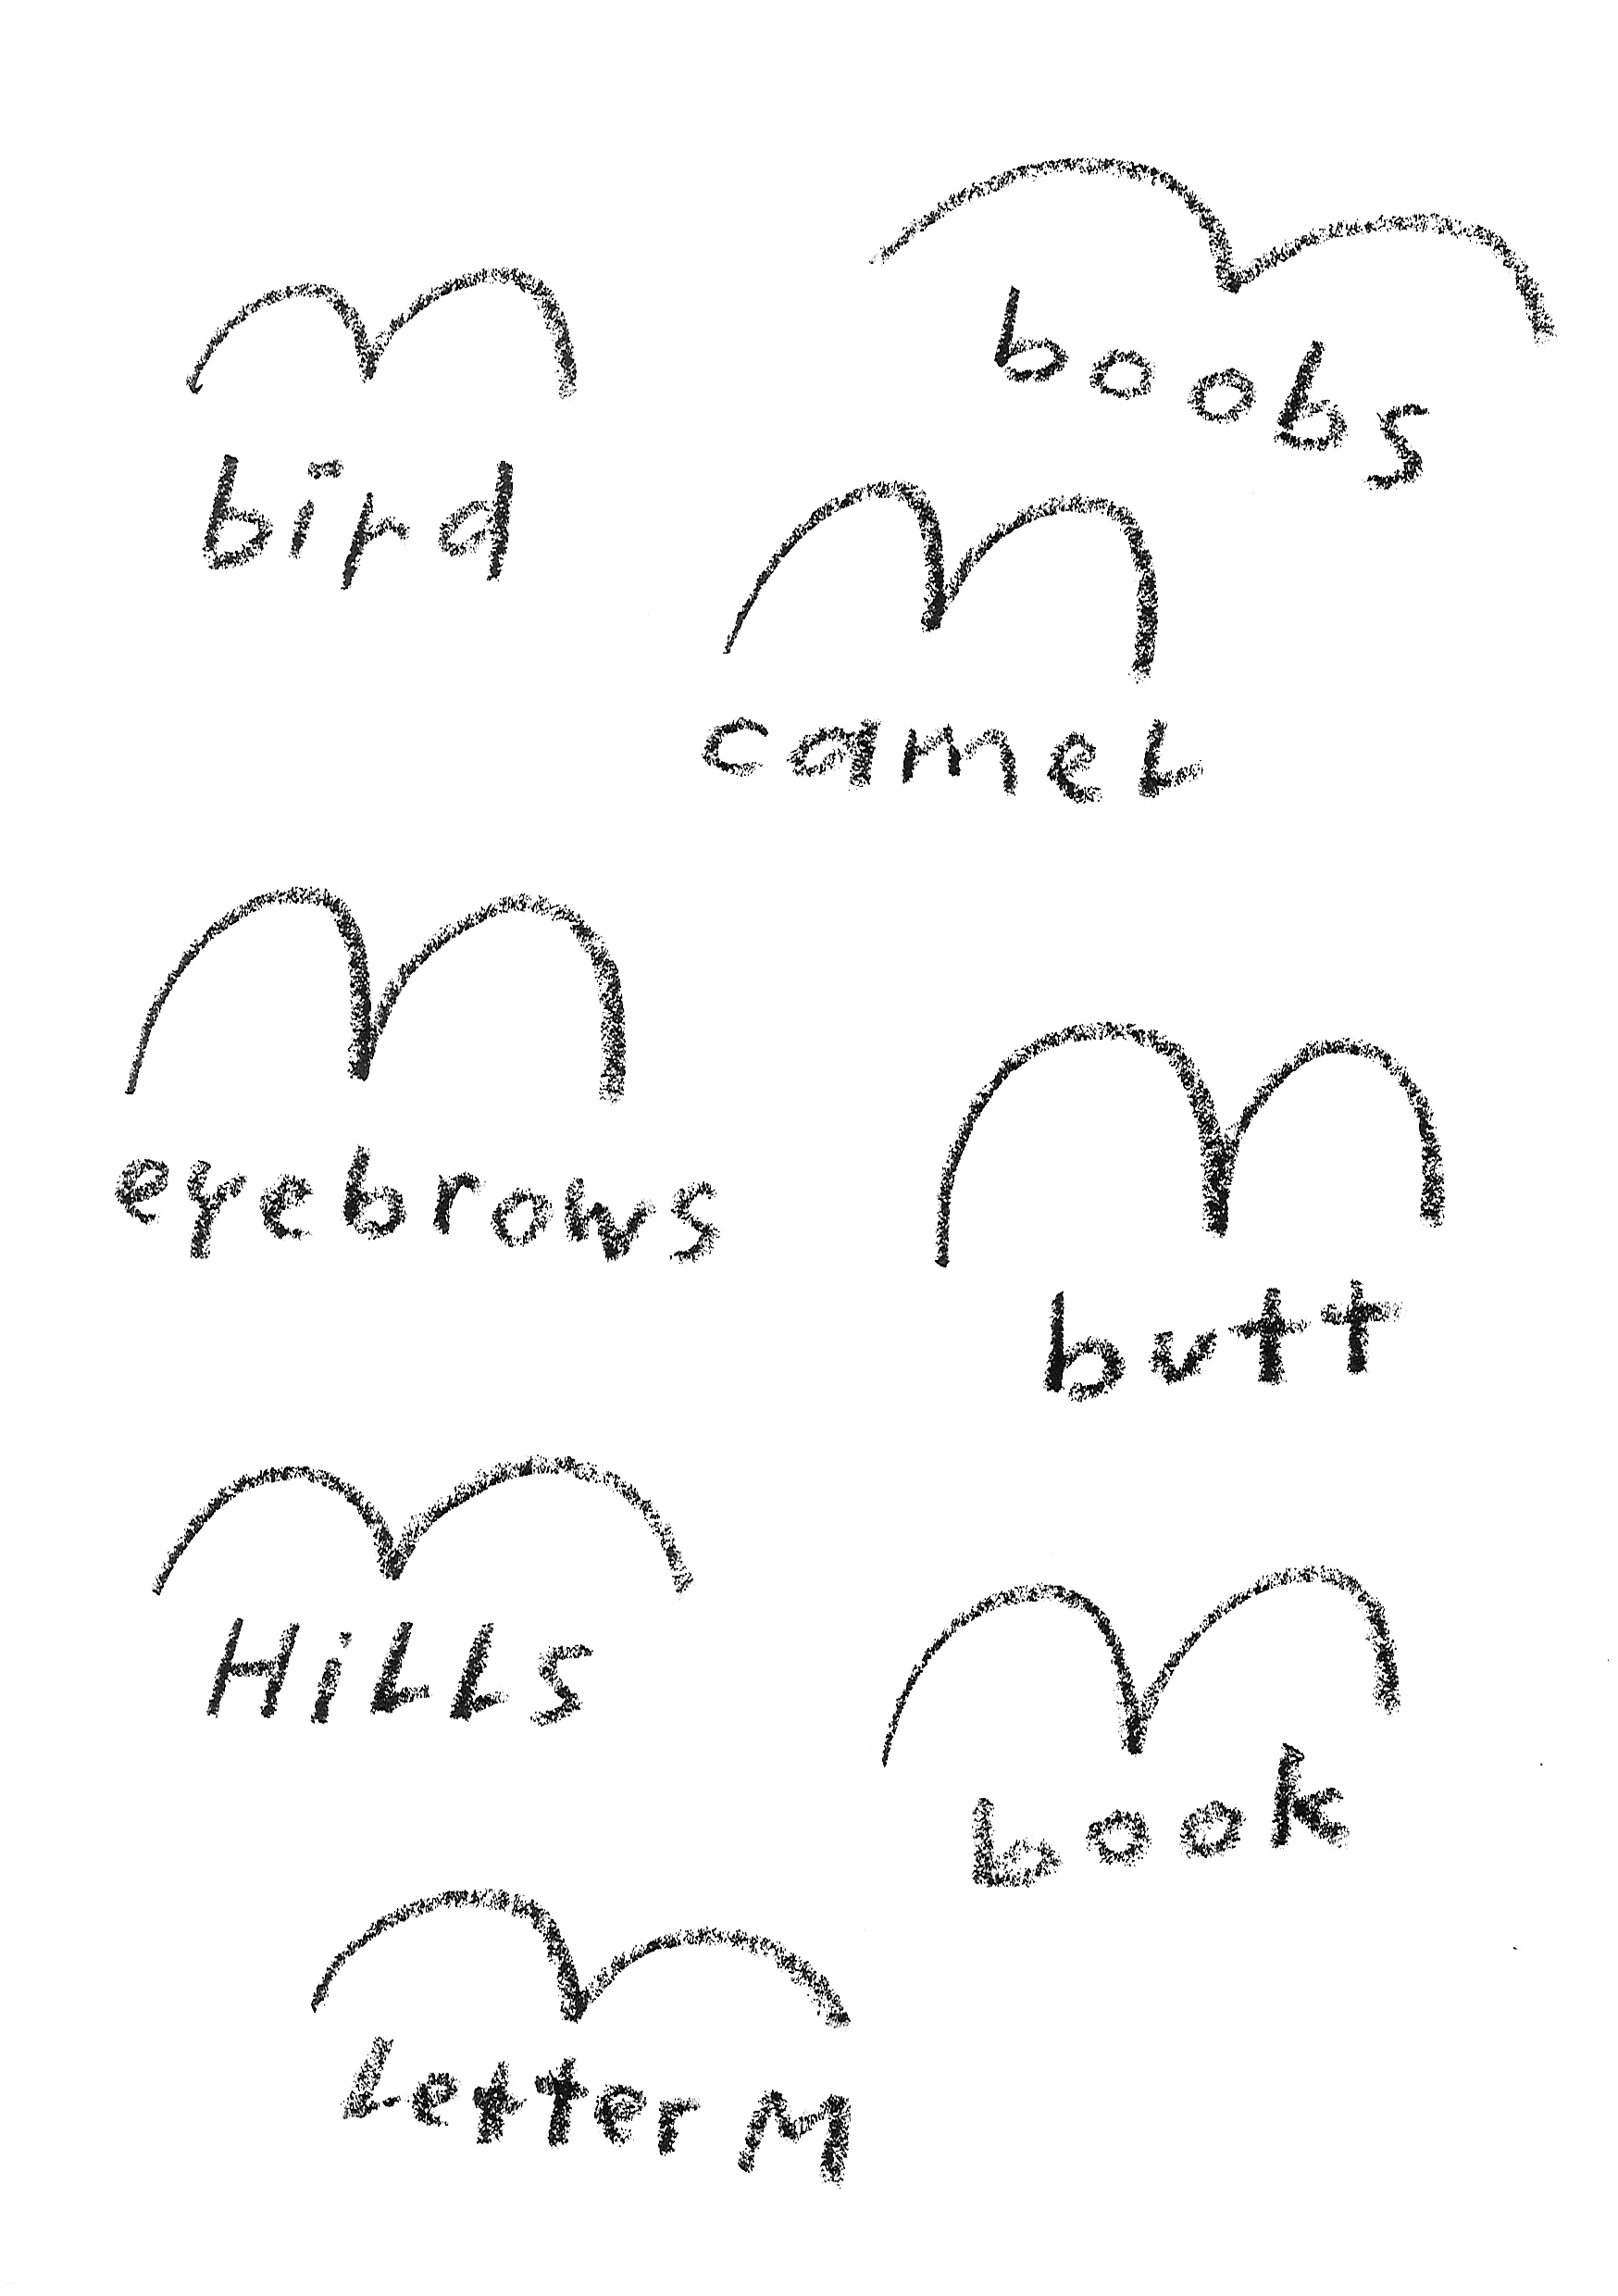 bird
boobs
camel
eyebrows
butt
Hills
book
Letter M